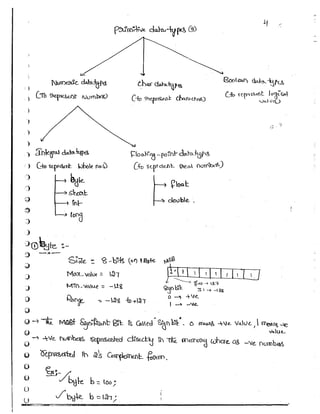 4
Primitive data-types (8)
Numeric datatypes
Char datatypes
Boolean data-types
(To represent numbers)
(to represent characters)
(to represent logical values)
Integral datatypes
Floating-point datatypes
(to represent whole no's)
(to represent real numbers)
byte
short
int
long
float
double.
① byte :-
Size = 8-bits (or) 1 Byte
MSB
Max. value = 127
1 1 1 1 1 1 1
Min. value = -128
Sign bit
Range = -128 to +127
0 → +ve
1 → -ve
→ The Most Significant Bit is called "Sign bit". 0 means +ve value, 1 means -ve
value.
→ +ve numbers represented directly in the memory where as -ve numbers
represented in 2's complement form.
Ex:-
✓ byte b = 100;
✓ byte b = 127;